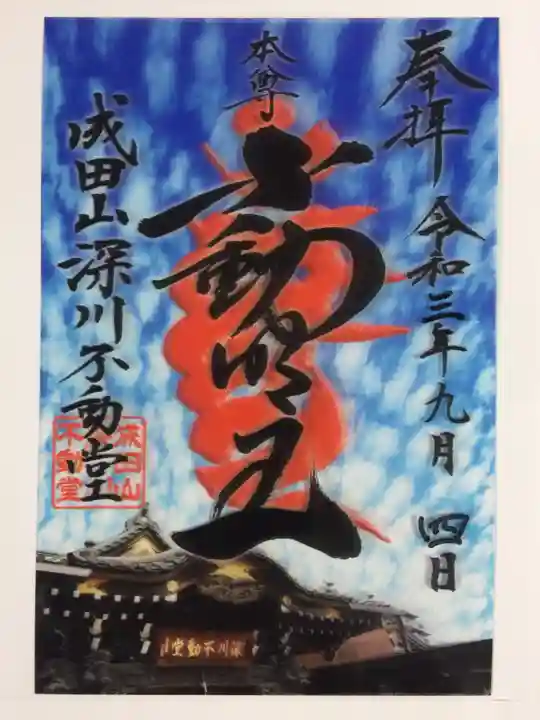 奉拝 令和三年九月 四日
本尊
不動明王
成田山深川不動堂
成田山
不動堂
深川不動堂